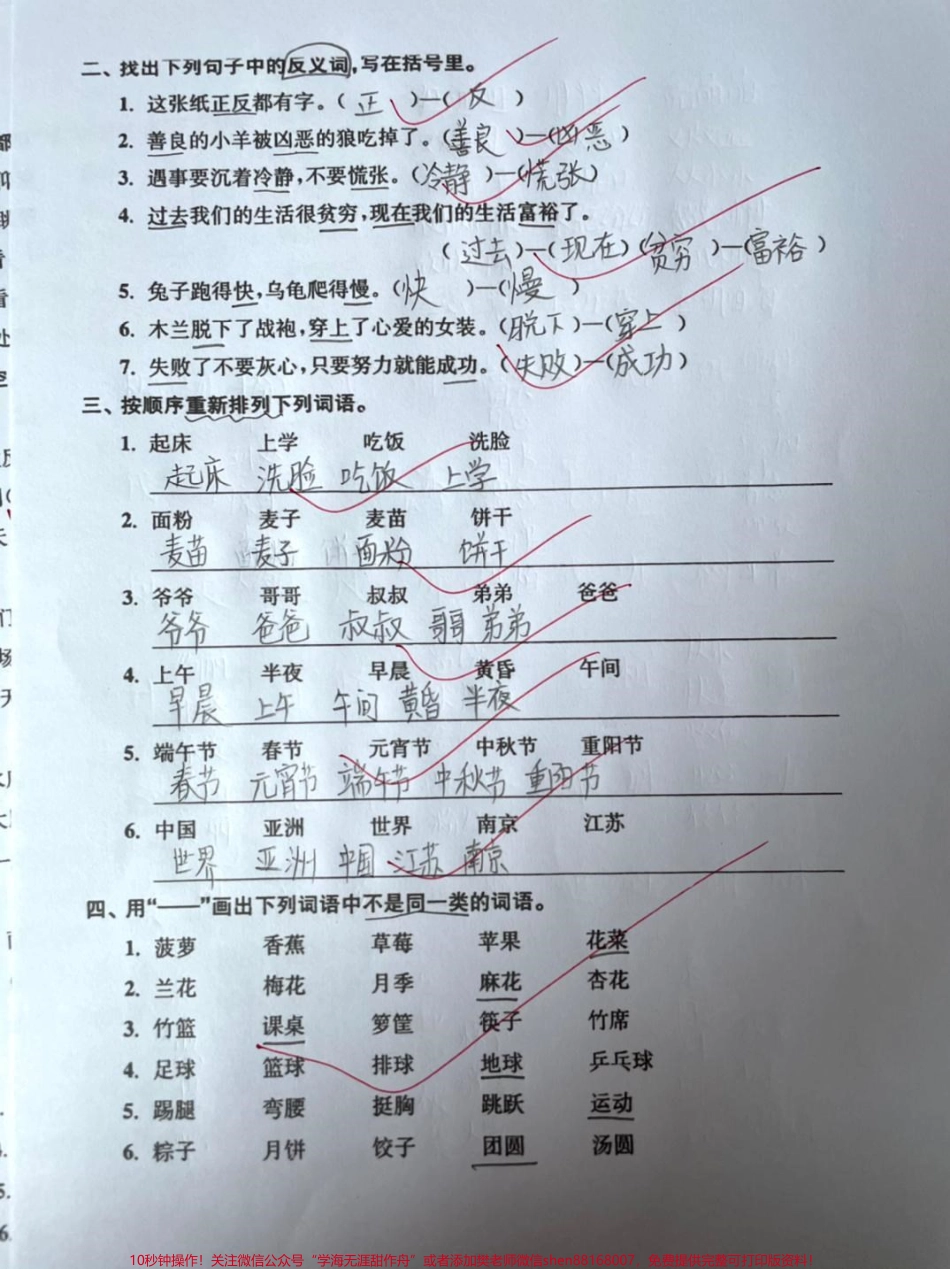 二、找出下列句子中的反义词,写在括号里。
1. 这张纸正反都有字。(正)—(反)
2. 善良的小羊被凶恶的狼吃掉了。(善良)—(凶恶)
3. 遇事要沉着冷静,不要慌张。(冷静)—(慌张)
4. 过去我们的生活很贫穷,现在我们的生活富裕了。
(过去)—(现在)(贫穷)—(富裕)
5. 兔子跑得快,乌龟爬得慢。(快)—(慢)
6. 木兰脱下了战袍,穿上了心爱的女装。(脱下)—(穿上)
7. 失败了不要灰心,只要努力就能成功。(失败)—(成功)
三、按顺序重新排列下列词语。
1. 起床 上学 吃饭 洗脸
起床 洗脸 吃饭 上学
2. 面粉 麦子 麦苗 饼干
麦苗 麦子 面粉 饼干
3. 爷爷 哥哥 叔叔 弟弟 爸爸
爷爷 爸爸 叔叔 哥哥 弟弟
4. 上午 半夜 早晨 黄昏 午间
早晨 上午 午间 黄昏 半夜
5. 端午节 春节 元宵节 中秋节 重阳节
春节 元宵节 端午节 中秋节 重阳节
6. 中国 亚洲 世界 南京 江苏
世界 亚洲 中国 江苏 南京
四、用“——”画出下列词语中不是同一类的词语。
1. 菠萝 香蕉 草莓 苹果 花菜
2. 兰花 梅花 月季 麻花 杏花
3. 竹篮 课桌 箩筐 筷子 竹席
4. 足球 篮球 排球 地球 乒乓球
5. 踢腿 弯腰 挺胸 跳跃 运动
6. 粽子 月饼 饺子 团圆 汤圆
10秒钟操作！关注微信公众号“学海无涯甜作舟”或者添加樊老师微信shen88168007，免费提供完整可打印版资料！